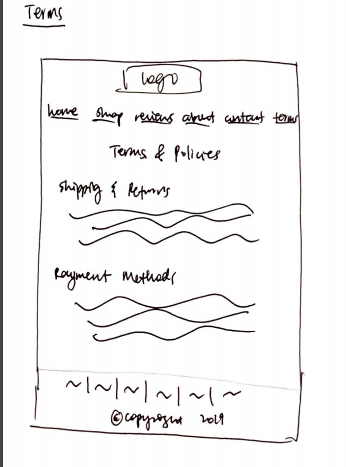 Terms
Logo
home shop reviews about contact terms
Terms & Policies
Shipping & Returns
Payment Methods
~|~|~|~|~|~
©copyright 2019